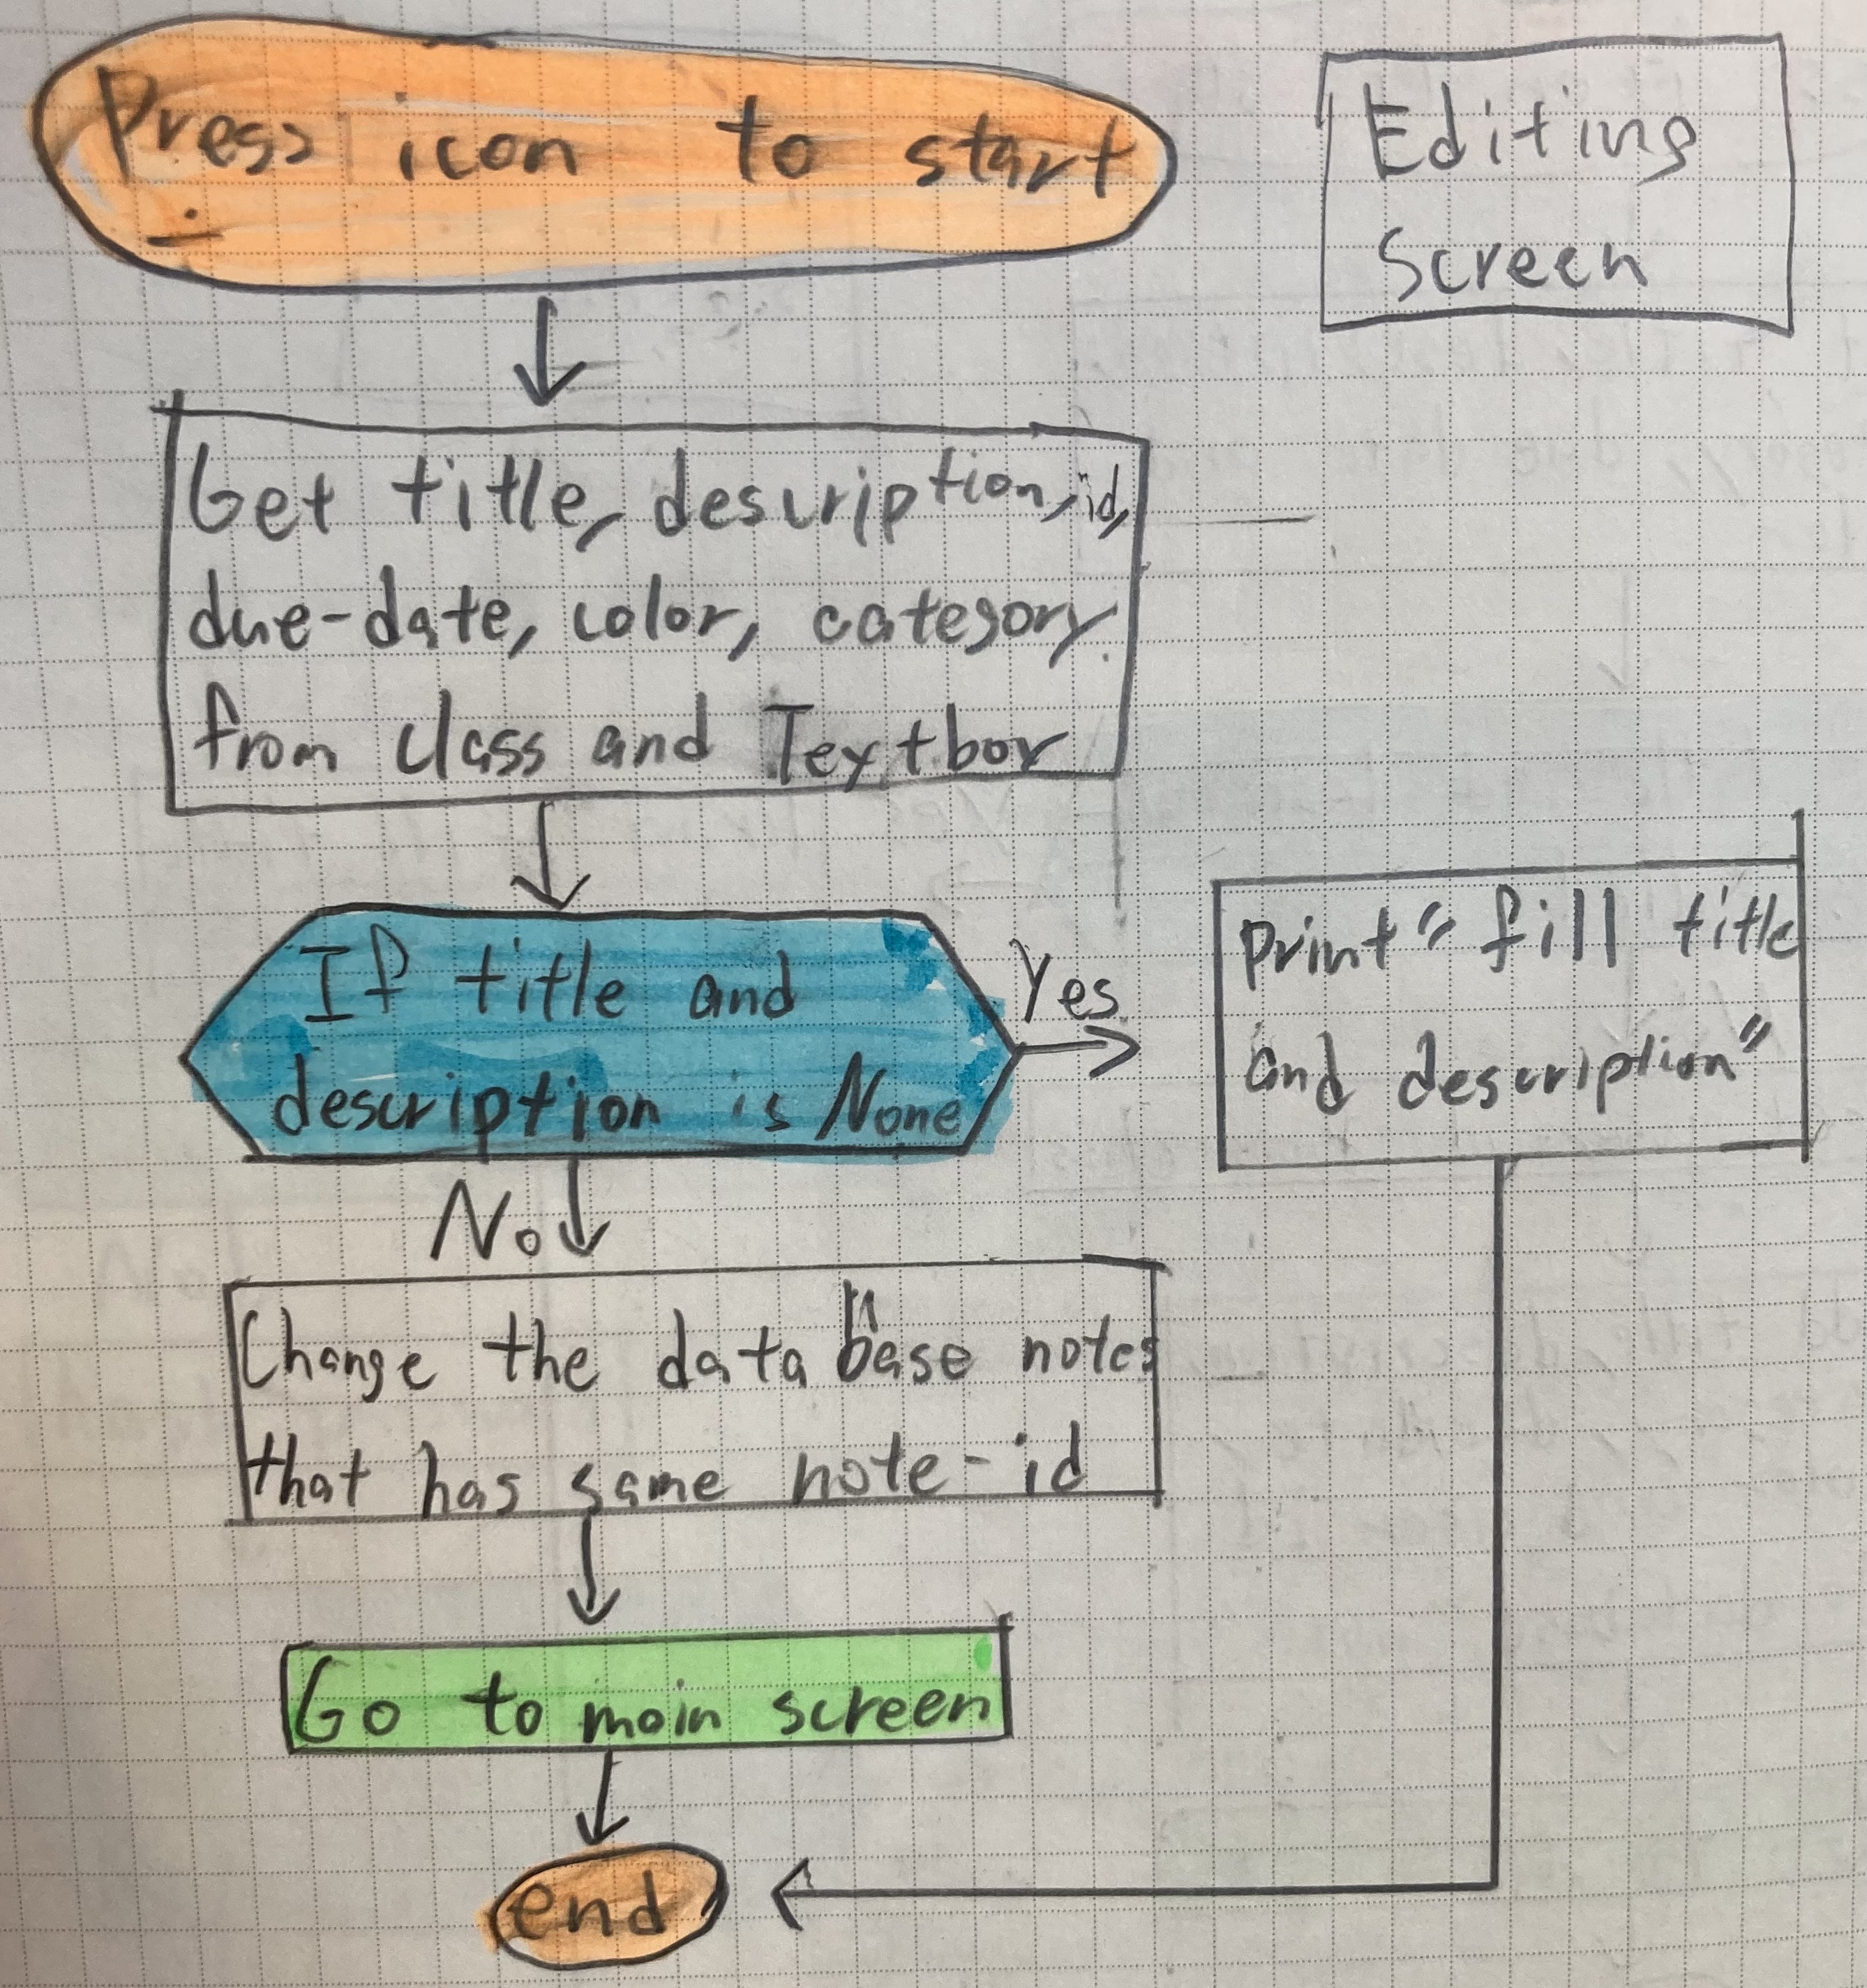 Press icon to start
Editing
Screen
Get title, description, id,
due-date, color, category
from class and Textbox
If title and
description is None
Yes
print "fill title
and description"
No
Change the data base notes
that has same note-id
Go to main screen
end